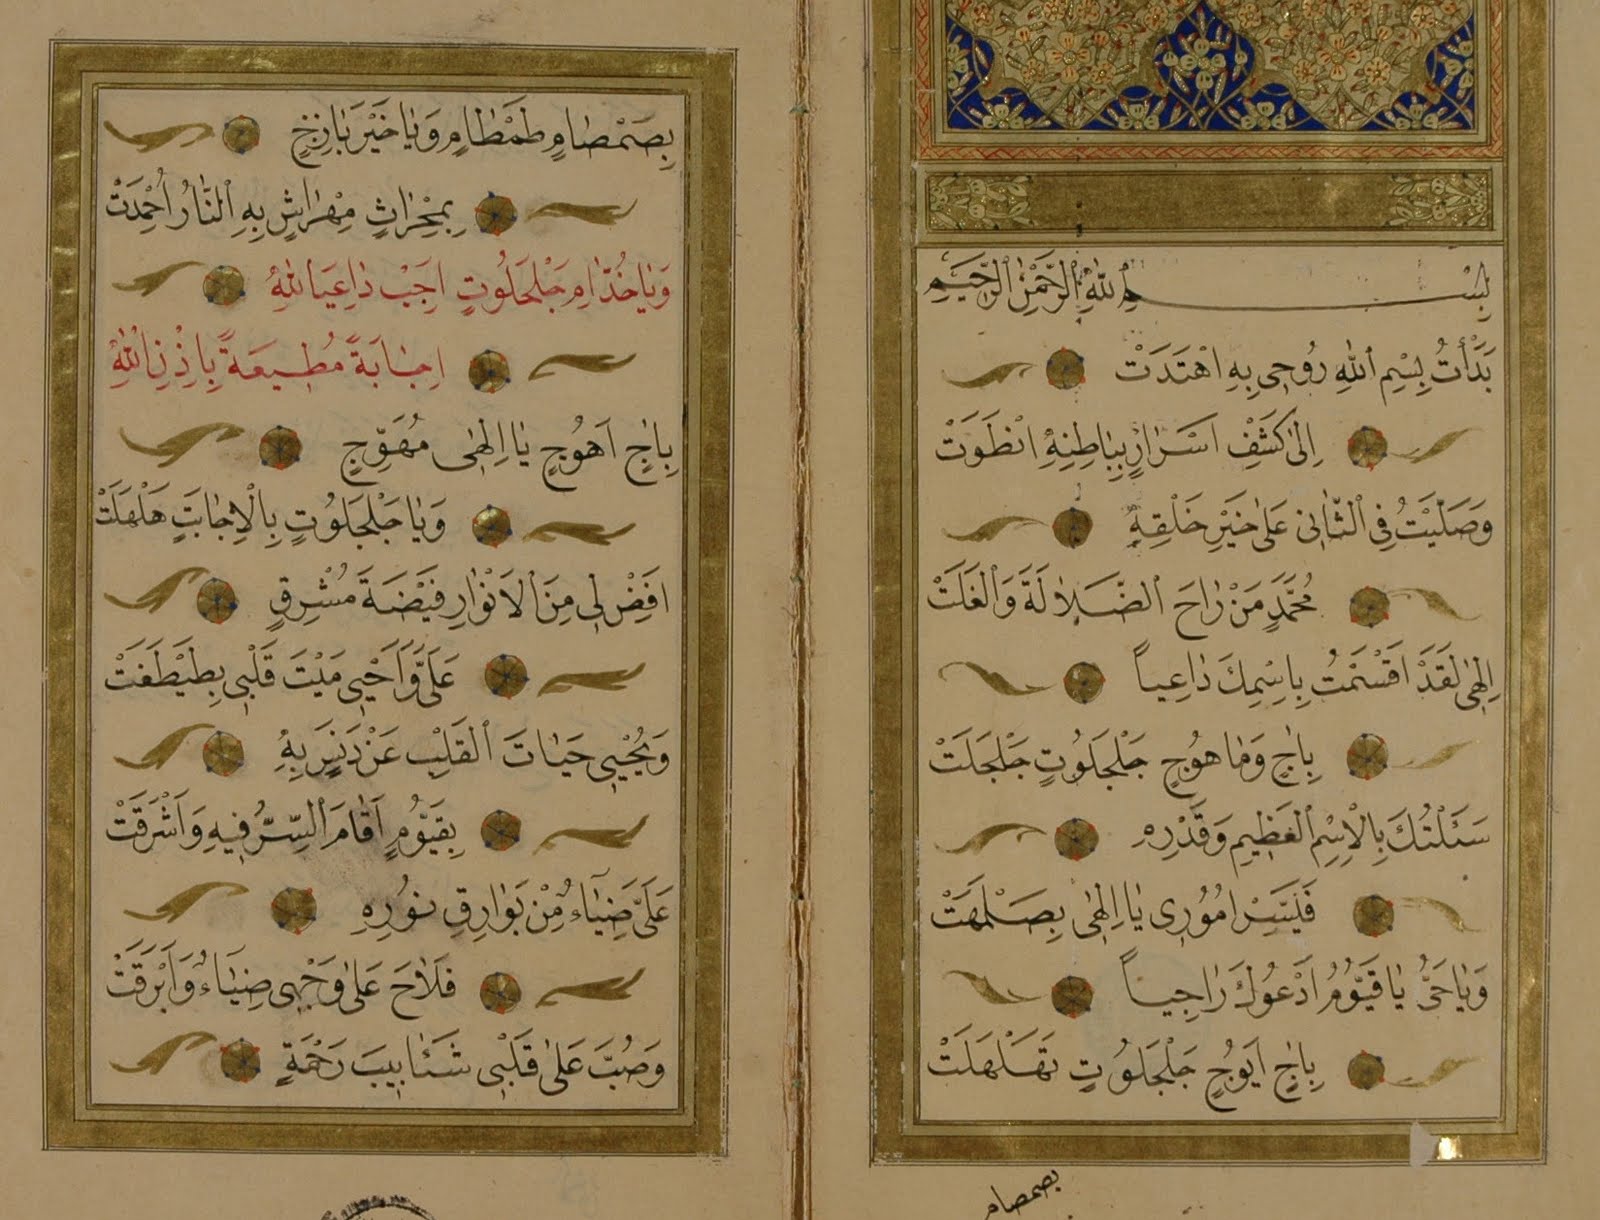 بِسْمِ اللّٰهِ الرَّحْمٰنِ الرَّحِيمِ
بَدَأْتُ بِبِسْمِ اللّٰهِ رُوحِى بِهِ اهْتَدَتْ
اِلٰى كَشْفِ اَسْرَارٍ بِبَاطِنِهِ انْطَوَتْ
وَصَلَّيْتُ فِى الثَّانِى عَلٰى خَيْرِ خَلْقِهِ
مُحَمَّدٍ مَنْ زَاحَ الضَّلَالَةَ وَالْغَلَتْ
اِلٰهِى لَقَدْ اَقْسَمْتُ بِاسْمِكَ دَاعِياً
بِاٰجٍ وَمَا هُوجٍ جَلْجَلُوتٍ جَلْجَلَتْ
سَئَلْتُكَ بِالْاِسْمِ الْعَظِيمِ وَقَدْرِهِ
فَيَسِّرْ اُمُورِى يَا اِلٰهِى بِصَلْمَهَتْ
وَيَا حَىُّ يَا قَيُّومُ اَدْعُوكَ رَاجِياً
بِاٰجٍ اَيُوجٍ جَلْجَلُوتٍ تَهَلْهَلَتْ
بصمصام
بِصَمْصَامٍ طَمْطَامٍ وَيَا خَيْرَ بَازِخٍ
بِمِحْرَاثٍ مِهْرَاشٍ بِهِ النَّارُ اُخْمِدَتْ
وَيَا خُدَّامِ جَلْجَلُوتٍ اَجِبْ دَاعِىَ اللّٰهِ
اِجَابَةً مُطِيعَةً بِاِذْنِ اللّٰهِ
بِاٰجٍ اَهُوجٍ يَا اِلٰهِى مُهَوِّجٍ
وَيَا جَلْجَلُوتٍ بِالْاِجَابَتِ هَلْهَلَتْ
اَفِضْ لِى مِنَ الْاَنْوَارِ فَيْضَةَ مُشْرِقٍ
عَلَىَّ وَاَحْيِى مَيْتَ قَلْبِى بِطَيْطَغَتْ
وَيُحْيِى حَيَاتَ الْقَلْبِ عَنْ دَنَسٍ بِهِ
بِقَيُّومٍ اَقَامَ السِّرُّ فِيهِ وَاَشْرَقَتْ
عَلَىَّ ضِيَاءٌ مِنْ بَوَارِقِ نُورِهِ
فَلَاحَ عَلٰى وَجْهِى ضِيَاءٌ وَاَبْرَقَتْ
وَصُبَّ عَلٰى قَلْبِى شَئَابِيبَ رَحْمَةٍ